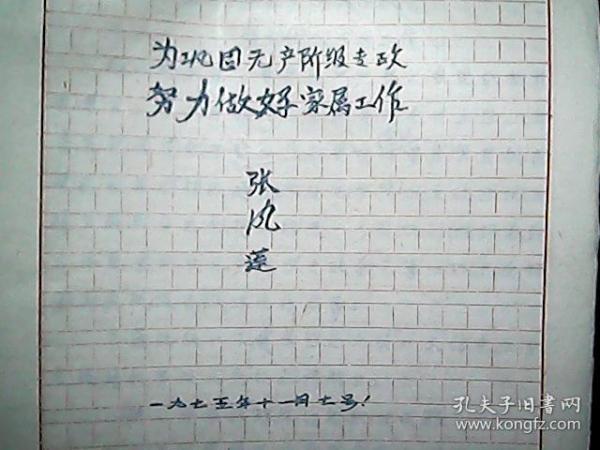 为巩固无产阶级专政
努力做好家属工作
张
凤
莲
一九七五年十一月七号!
孔夫子旧書网
www.kongfz.com